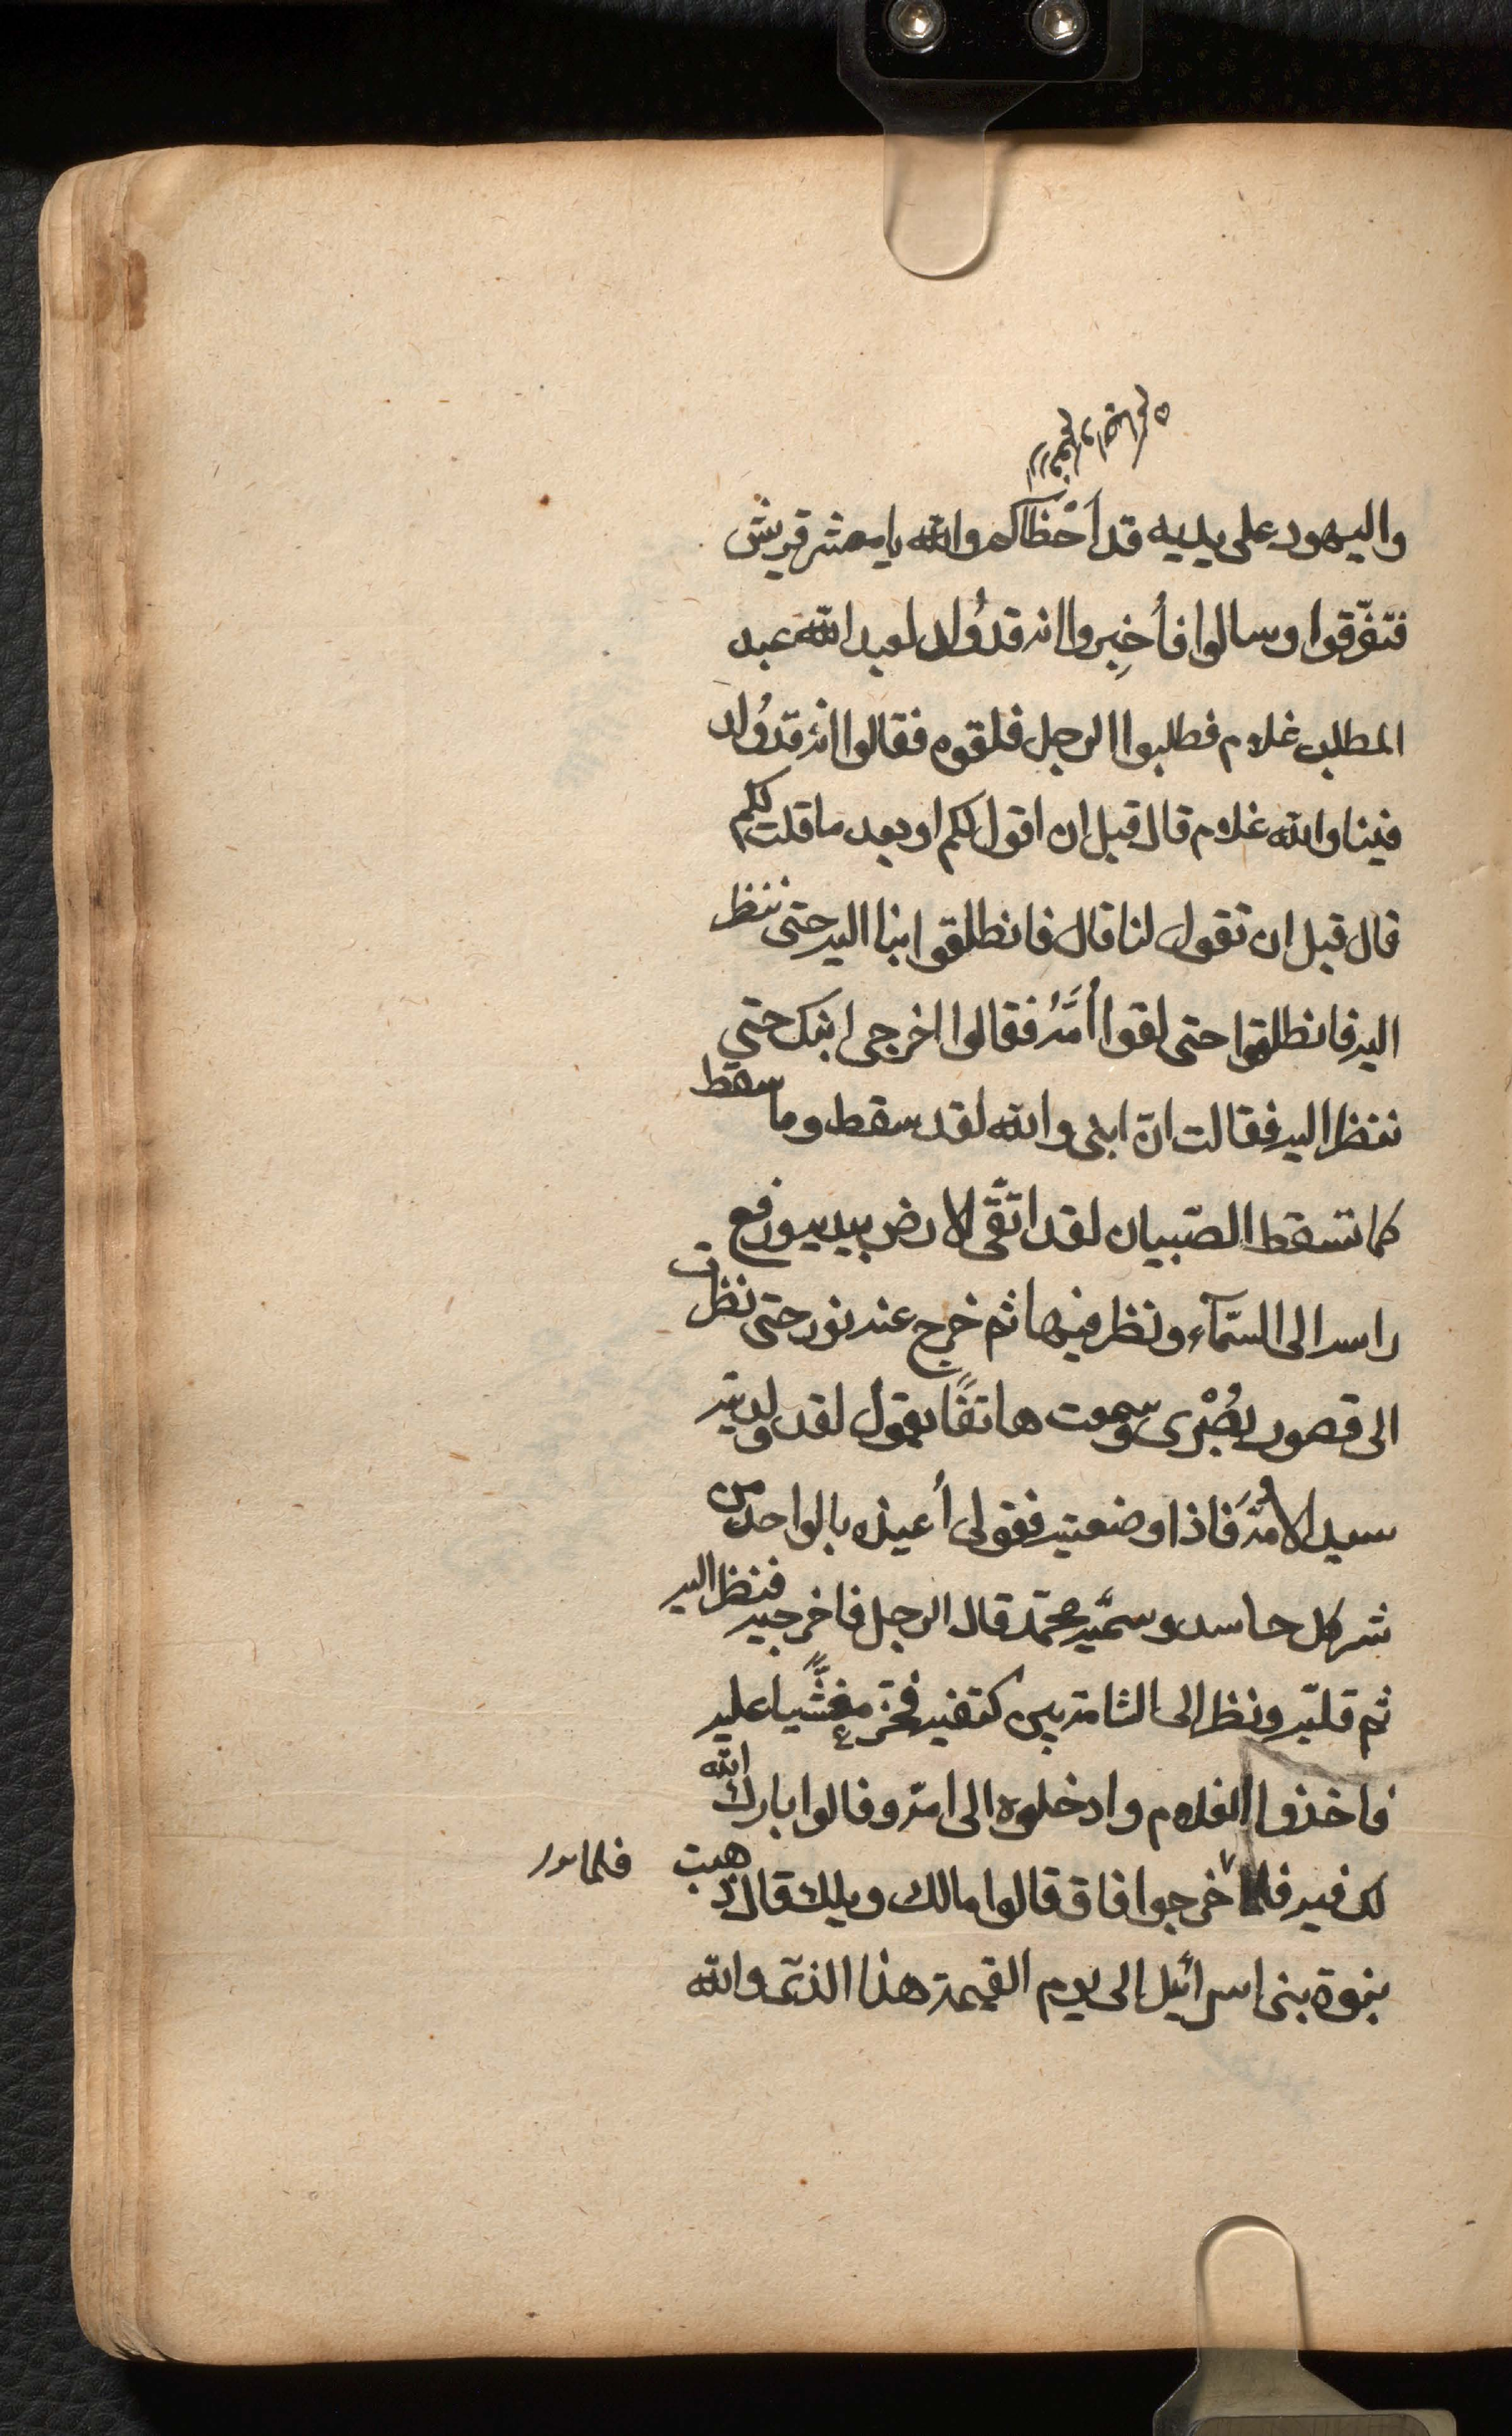 واليهود على يديه قد اخطاكم والله يا معشر قريش
فتفّرقوا وسالوا فأُخبِروا انه قد وُلد لعبد الله عبد
المطلب غلام فطلبوا الرجل فلقوه فقالوا انه قد وُلد
فينا والله غلام قال قبل ان اقول لكم او بعد ما قلت لكم
قال قبل ان تقول لنا قال فانطلقوا بنا اليه حتى ننظر
اليه فانطلقوا حتى لقوا أُمَّهُ فقالوا اخرجى ابنك حتى
ننظر اليه فقالت انّ ابنى والله لقد سقط وما سقط
كما تسقط الصّبيان لقد اتّقى الارض بيديه ورفع
راسه الى السّمآء ونظر فيها ثم خرج عنه نور حتى نظرت
الى قصور بُصْرى وسمعت هاتفًا يقول لقد ولدتيه
سيد الاُمَّة فاذا وضعتيه فقولى أُعيذه بالواحد من
شر كل حاسد وسمّيه محمّد قال الرجل فاخرجيه فنظر اليه
ثم قلّبه ونظر الى الشامة بين كتفيه فخرّ مغشّيا عليه
فاخذوا الغلام وادخلوه الى امّه وقالوا بارك الله
لك فيه فلما خرجوا افاق قالوا مالك ويلك قال ذهبت
نبوة بنى اسرائيل الى يوم القيمة هذا الذى والله